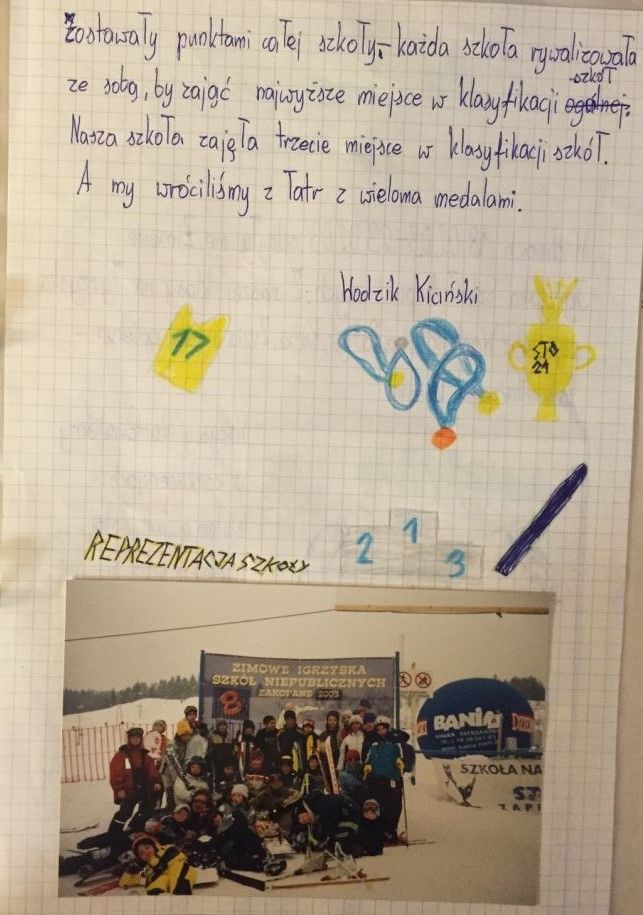 zostawały punktami całej szkoły. każda szkoła rywalizowała
ze sobą, by zająć najwyższe miejsce w klasyfikacji szkół
ogólnej.
Nasza szkoła zajęła trzecie miejsce w klasyfikacji szkół.
A my wróciliśmy z Tatr z wieloma medalami.
Wodzik Kiciński
17
STO
21
2 1 3
REPREZENTACJA SZKOŁY
ZIMOWE IGRZYSKA
SZKÓŁ NIEPUBLICZNYCH
ZAKOPANE 2003
BANIA
SZKOŁA NA